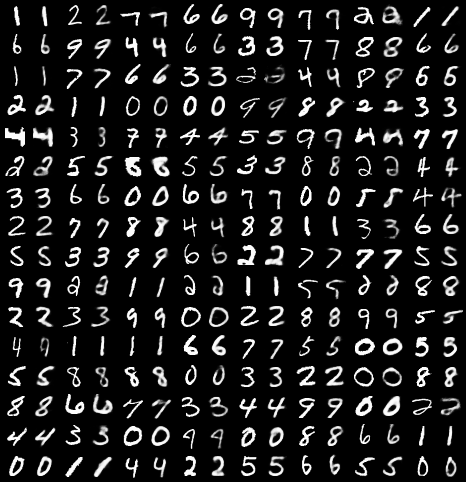 1 1 2 2 7 7 6 6 9 9 7 9 2 2 1 1
6 6 9 9 4 4 6 6 3 3 7 7 8 8 6 6
1 1 7 7 6 6 3 3 2 2 4 4 8 8 6 6
2 2 1 1 0 0 0 0 9 9 8 8 2 2 3 3
4 4 3 3 7 7 4 4 5 5 9 9 4 4 7 7
2 2 5 5 8 8 5 5 3 3 8 8 2 2 4 4
3 3 6 6 0 0 6 6 7 7 0 0 5 8 4 4
2 2 7 7 8 8 4 4 8 8 1 1 3 3 6 6
5 5 3 3 9 9 6 6 2 2 7 7 7 7 5 5
9 9 2 2 1 1 2 2 1 1 5 5 2 2 8 8
2 2 3 3 9 9 0 0 2 2 8 8 9 9 5 5
4 9 1 1 1 1 6 6 7 7 5 5 0 0 5 5
5 5 8 8 8 8 0 0 3 3 2 2 0 0 8 8
8 8 6 6 7 7 3 3 4 4 9 9 0 0 2 2
4 4 3 3 0 0 9 9 0 0 8 8 6 6 1 1
0 0 1 1 4 4 2 2 5 5 6 6 5 5 0 0